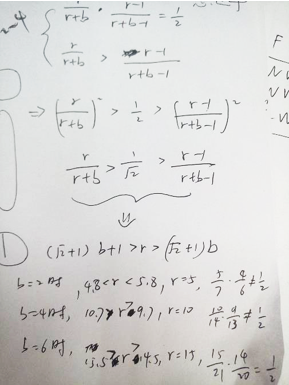 r/(r+b) · (r-1)/(r+b-1) = 1/2
r/(r+b) > (r-1)/(r+b-1)
⇒ (r/(r+b))² > 1/2 > ((r-1)/(r+b-1))²
r/(r+b) > 1/√2 > (r-1)/(r+b-1)
⇓
(√2+1) b+1 > r > (√2+1) b
b=2时, 4.8<r<5.8, r=5, 5/7 · 4/6 ≠ 1/2
b=4时, 10.7>r>9.7, r=10 10/14 · 9/13 ≠ 1/2
b=6时, 15.5>r>14.5, r=15, 15/21 · 14/20 = 1/2